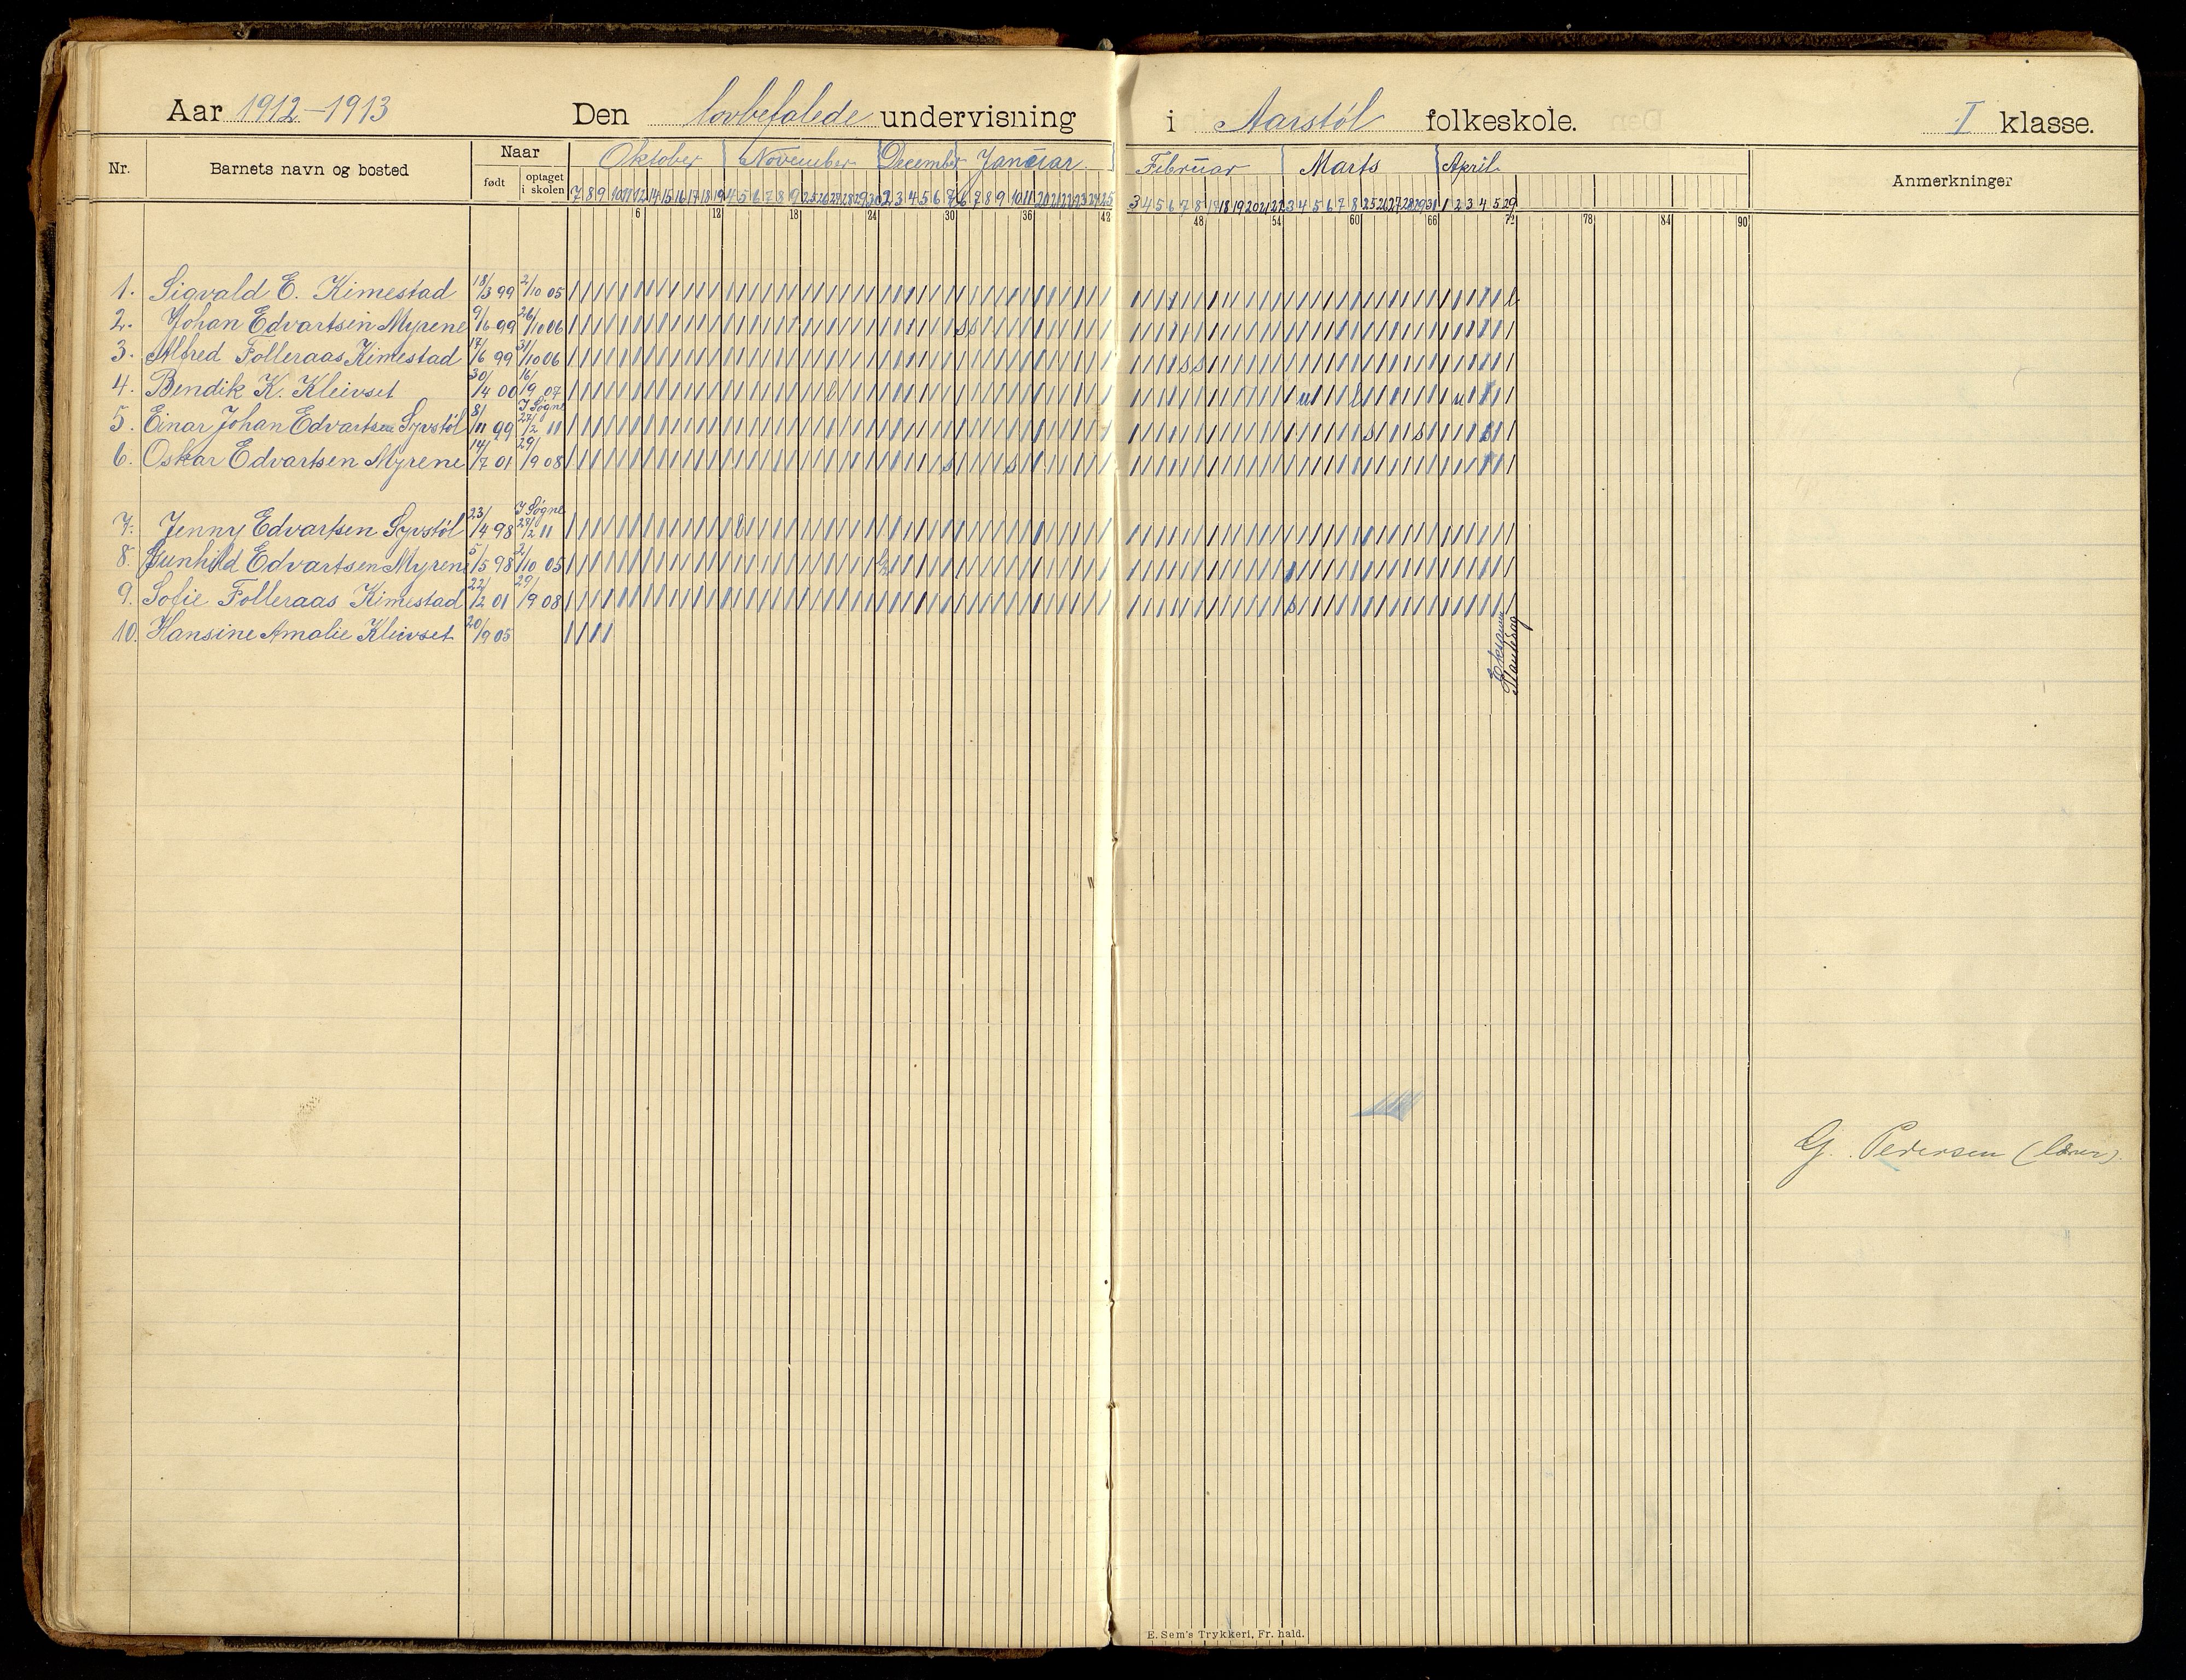 Aar 1912-1913 Den lovbefalede undervisning i Aarstøl folkeskole. I klasse.
Nr. Barnets navn og bosted Naar Oktober November December Januar Februar Marts April Anmerkninger
født optaget i skolen
7 8 9 10 11 12 14 15 16 17 18 19 4 5 6 7 8 9 25 26 27 28 29 30 2 3 4 5 6 7 6 7 8 9 10 11 20 21 22 23 24 25 3 4 5 6 7 8 17 18 19 20 21 22 3 4 5 6 7 8 25 26 27 28 29 31 1 2 3 4 5 29
6 12 18 24 30 36 42 48 54 60 66 72 78 84 90
1. Sigvald E. Kimestad 18/3 99 2/10 05
2. Johan Edvartsen Myrene 9/6 99 26/10 06
3. Alfred Folleraas Kimestad 17/6 99 31/10 06
4. Bendik K. Kleivset 30/4 00 16/9 07
5. Einar Johan Edvartsen Syvstøl 8/11 99 I Søgne 27/2 11
6. Oskar Edvartsen Myrene 14/7 01 29/9 08
7. Jenny Edvartsen Syvstøl 23/4 98 I Søgne 27/2 11
8. Gunhild Edvartsen Myrene 5/5 98 2/10 05
9. Sofie Folleraas Kimestad 22/2 01 29/9 08
10. Hansine Amalie Kleivset 20/9 05
Eksamen
G. Pedersen (lærer).
E. Sem's Trykkeri, Fr. hald.